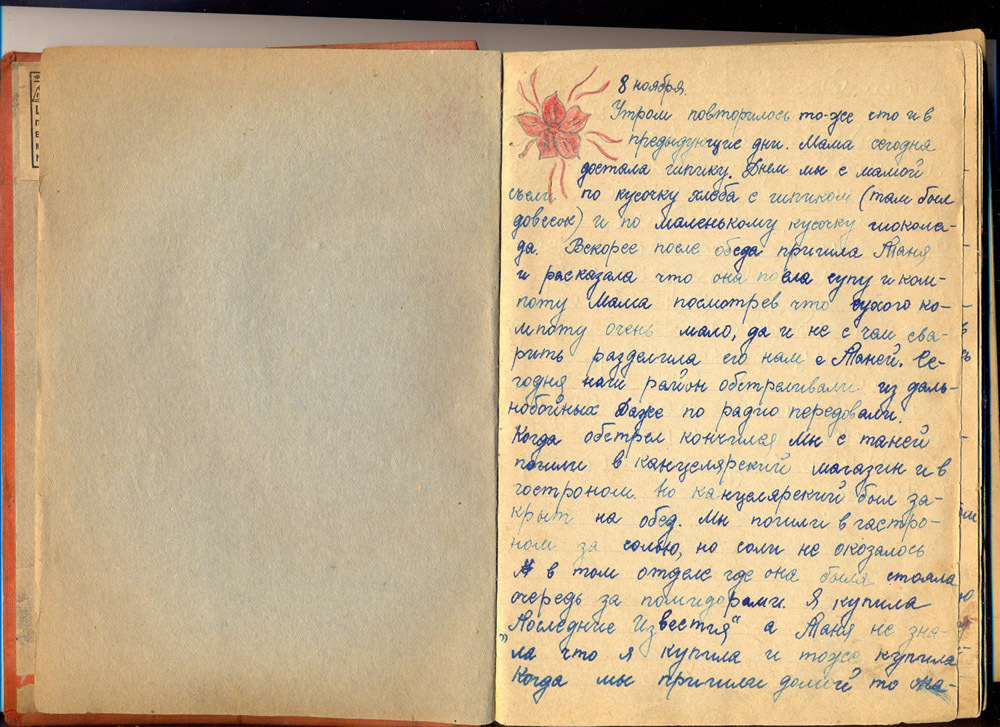 8 ноября.
Утром повторилось то-же что и в
предыдующие дни. Мама сегодня
достала шпику. Днем мы с мамой
съели по кусочку хлеба с шпиком (там был
довесок) и по маленькому кусочку шокола-
да. Вскорее после обеда пришла Таня
и расказала что она поела супу и ком-
поту Мама посмотрев что сухого ко-
мпоту очень мало, да и не с чам сва-
рить разделила его нам с Таней. Се-
годня наш район обстреливали из даль-
нобойных Даже по радио передовали.
Когда обстрел кончился мы с таней
пошли в канцелярский магазин и в
гостроном. но канцелярский был за-
крыт на обед. Мы пошли в гастро-
ном за солью, но соли не окозалось
в том отделе где она была стояла
очередь за помидорами. Я купила
"Последние Известия" а Таня не зна-
ла что я купила и тоже купила
Когда мы пришли домой то